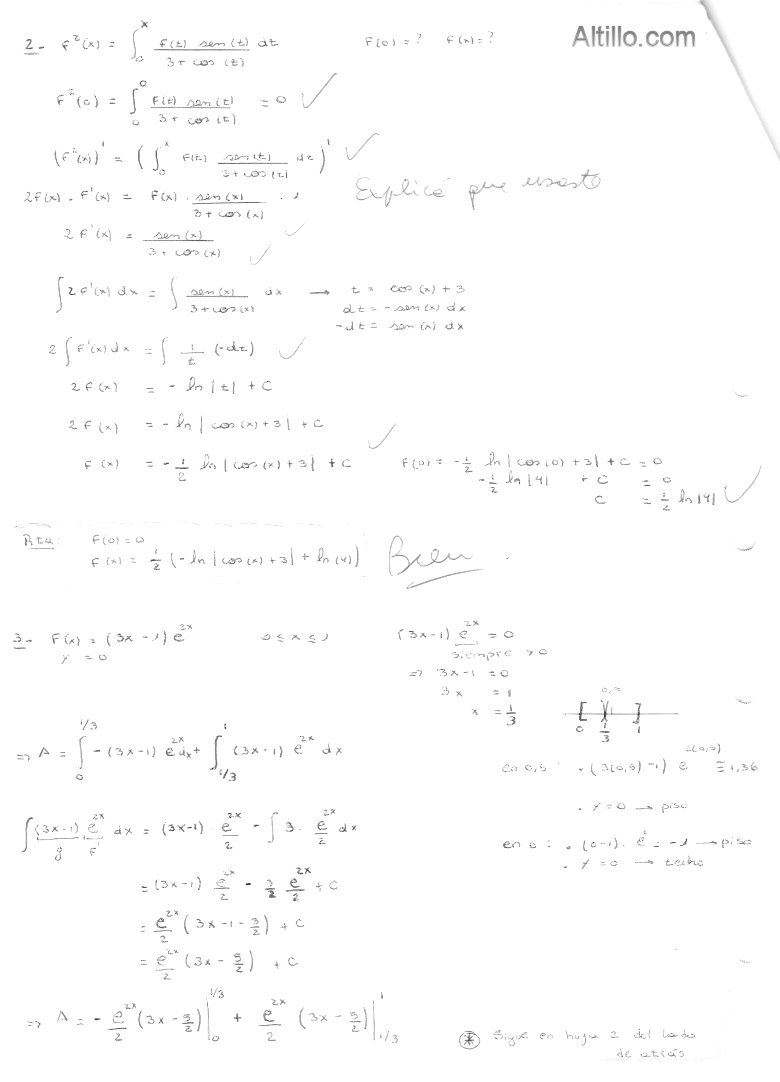 Altillo.com
2- F²(x) = ∫₀ˣ F(t) sen(t) / 3 + cos(t) dt    F(0) = ?    F(x) = ?
F²(0) = ∫₀⁰ F(t) sen(t) / 3 + cos(t) = 0 ✓
(F²(x))' = (∫₀ˣ F(t) sen(t) / 3 + cos(t) dt)' ✓
2F(x) . F'(x) = F(x) . sen(x) / 3 + cos(x) . 1
Explicá que usaste
2F'(x) = sen(x) / 3 + cos(x) ✓
∫ 2F'(x) dx = ∫ sen(x) / 3 + cos(x) dx → t = cos(x) + 3
dt = - sen(x) dx
-dt = sen(x) dx
2 ∫ F'(x) dx = ∫ 1/t (-dt) ✓
2F(x) = - ln |t| + C
2F(x) = - ln | cos(x) + 3 | + C
F(x) = - 1/2 ln | cos(x) + 3 | + C ✓
F(0) = - 1/2 ln | cos(0) + 3 | + C = 0
- 1/2 ln |4| + C = 0
C = 1/2 ln |4| ✓
Rta: F(0) = 0
F(x) = 1/2 (- ln | cos(x) + 3 | + ln (4))
Bien
3- F(x) = (3x - 1) e^2x    0 ≤ x ≤ 1
y = 0
(3x-1) e^2x = 0
siempre > 0
⇒ 3x - 1 = 0
3x = 1
x = 1/3
0,5
0 1/3 1
⇒ A = ∫₀^1/3 - (3x-1) e^2x dx + ∫_1/3^1 (3x-1) e^2x dx
en 0,5 : . (3(0,5) - 1) e^2(0,5) ≅ 1,36
. y = 0 → piso
∫ (3x-1) e^2x dx = (3x-1) . e^2x/2 - ∫ 3 . e^2x/2 dx
g F'
en 0 : . (0-1) . e = -1 → piso
. y = 0 → techo
= (3x-1) e^2x/2 - 3/2 e^2x/2 + C
= e^2x/2 (3x - 1 - 3/2) + C
= e^2x/2 (3x - 5/2) + C
⇒ A = - e^2x/2 (3x - 5/2) |₀^1/3 + e^2x/2 (3x - 5/2) |_1/3^1
* Sigue en hoja 2 del lado
de atrás